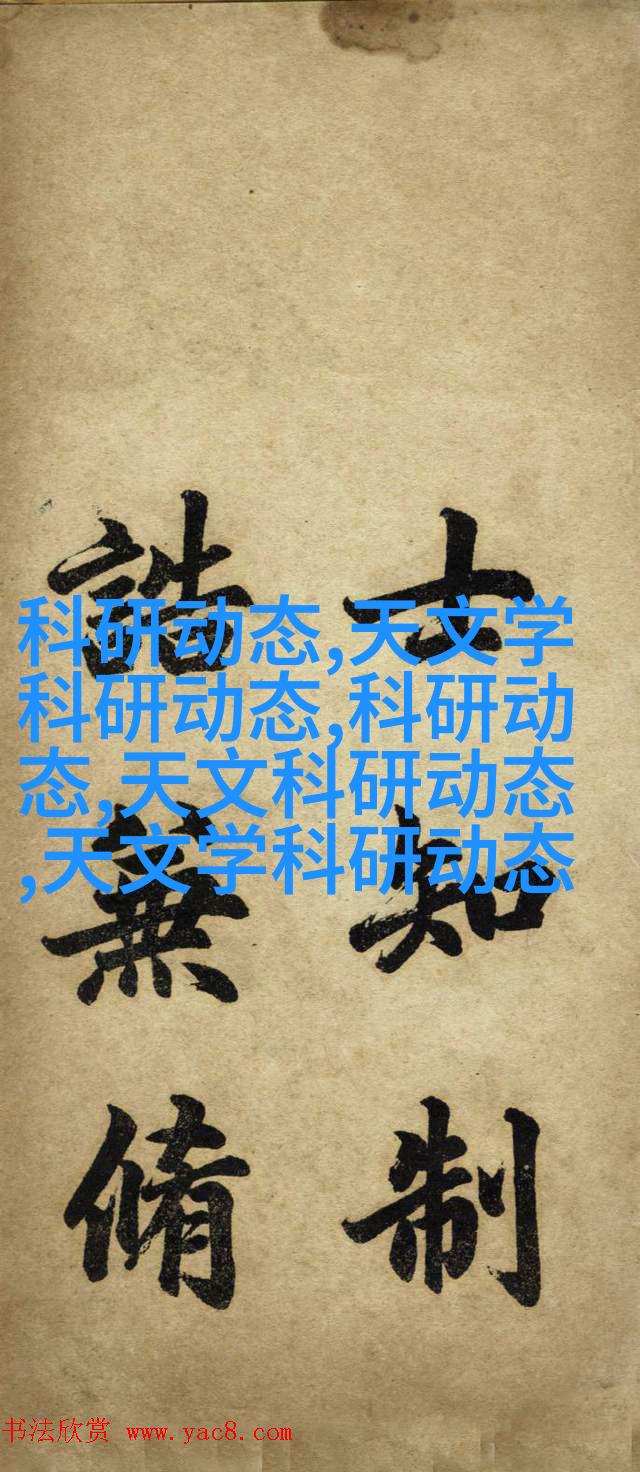 士知制
誥兼脩
科研动态,天文学
科研动态,科研动
态,天文科研动态
,天文学科研动态
书法欣赏 www.yac8.com